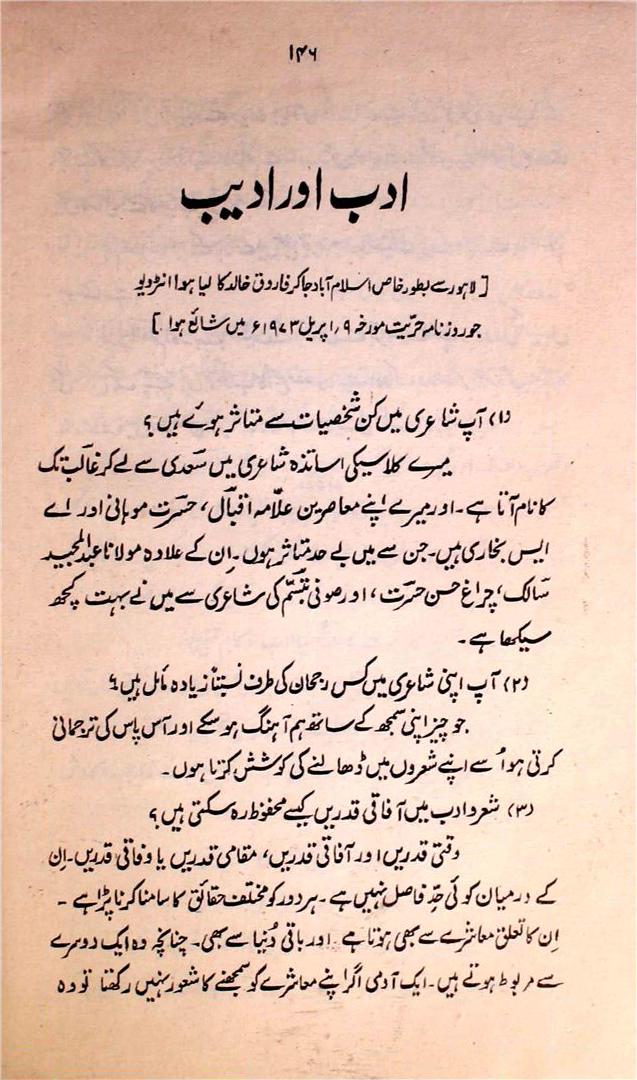 ۱۴۶
ادب اور ادیب
[لاہور سے بطور خاص اسلام آباد جا کر فاروق خالد کا لیا ہوا انٹرویو
جو روزنامہ حریت مورخہ ۹؍ اپریل ۱۹۷۳ء میں شائع ہوا۔]
(۱) آپ شاعری میں کن شخصیات سے متاثر ہوئے ہیں؟
میرے کلاسیکی اساتذہ شاعری میں سعدی سے لے کر غالب تک
کا نام آتا ہے۔ اور میرے اپنے معاصرین علامہ اقبال، حسرت موہانی اور اے
ایس بخاری ہیں۔ جن سے میں بے حد متاثر ہوں۔ اِن کے علاوہ مولانا عبدالمجید
سالک، چراغ حسن حسرت، اور صوفی تبسّم کی شاعری سے میں نے بہت کچھ
سیکھا ہے۔
(۲) آپ اپنی شاعری میں کس رجحان کی طرف نسبتاً زیادہ مائل ہیں؟
جو چیز اپنی سمجھ کے ساتھ ہم آہنگ ہو سکے اور آس پاس کی ترجمانی
کرتی ہو اُسے اپنے شعروں میں ڈھالنے کی کوشش کرتا ہوں۔
(۳) شعر و ادب میں آفاقی قدریں کیسے محفوظ رہ سکتی ہیں؟
وقتی قدریں اور آفاقی قدریں، مقامی قدریں یا وفاقی قدریں۔ اِن
کے درمیان کوئی حدِّ فاصل نہیں ہے۔ ہر دور کو مختلف حقائق کا سامنا کرنا پڑا ہے۔
اِن کا تعلق معاشرے سے بھی ہوتا ہے اور باقی دُنیا سے بھی۔ چنانچہ وہ ایک دوسرے
سے مربوط ہوتے ہیں۔ ایک آدمی اگر اپنے معاشرے کو سمجھنے کا شعور نہیں رکھتا تو وہ